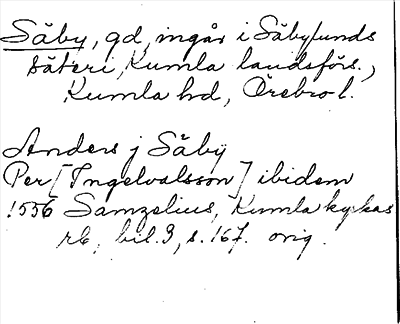 Säby, gd, ingår i Säbylunds
säteri, Kumla landsförs.,
Kumla hd, Örebro l.
Anders j Säby
Per [Ingelvalsson] ibidem
1556 Samzelius, Kumla kyrkas
rb, bil. 3, s. 167. orig.